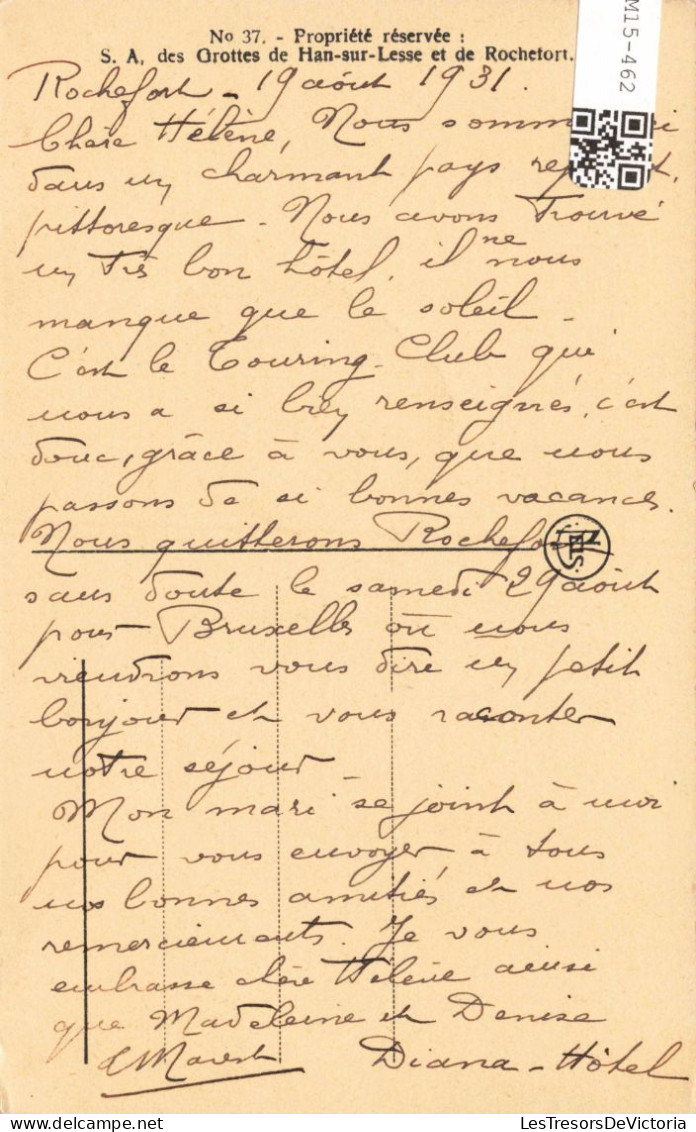 No 37. - Propriété réservée :
S. A. des Grottes de Han-sur-Lesse et de Rochefort.
M15-462
Rochefort - 19 août 1931.
Chère Hélène, Nous
dans un charmant pays
pittoresque - Nous avons trouvé
un très bon hôtel, il ne nous
manque que le soleil -
C'est le Touring-Club qui
nous a si bien renseignés, c'est
donc, grâce à vous, que nous
passons de si bonnes vacances.
Nous quitterons Rochefort
sans doute le samedi 29 août
pour Bruxelles où nous
viendrons vous dire un petit
bonjour et vous raconter
notre séjour
Mon mari se joint à moi
pour vous envoyer à tous
nos bonnes amitiés et nos
remerciements. Je vous
embrasse chère Hélène ainsi
que Madeleine et Denise
Diana-Hôtel
LesTresorsDeVictoria